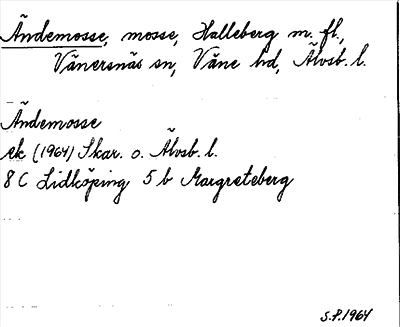 Ändemosse, mosse, Halleberg m. fl.,
Vänersnäs sn, Väne hd, Älvsb. l.
Ändemosse
ek (1964) Skar. o. Älvsb. l.
8 C Lidköping 5 b Margreteberg
S.P. 1964